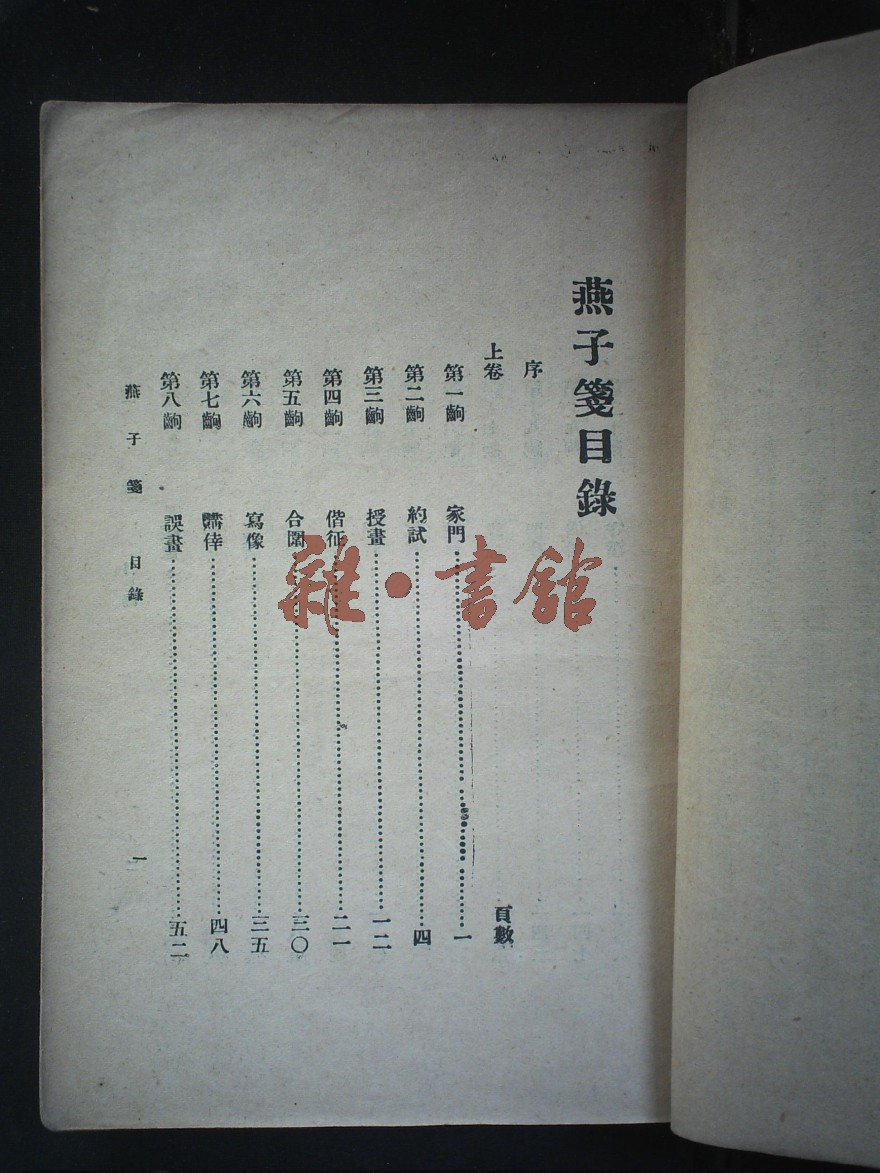 燕子箋目錄
序
上卷 頁數
第一齣 家門……一
第二齣 約試……四
第三齣 授畫……一二
第四齣 偕征……二一
第五齣 合圍……三〇
第六齣 寫像……三五
第七齣 購倖……四八
第八齣 誤畫……五二
燕子箋 目錄 一
雜·書館